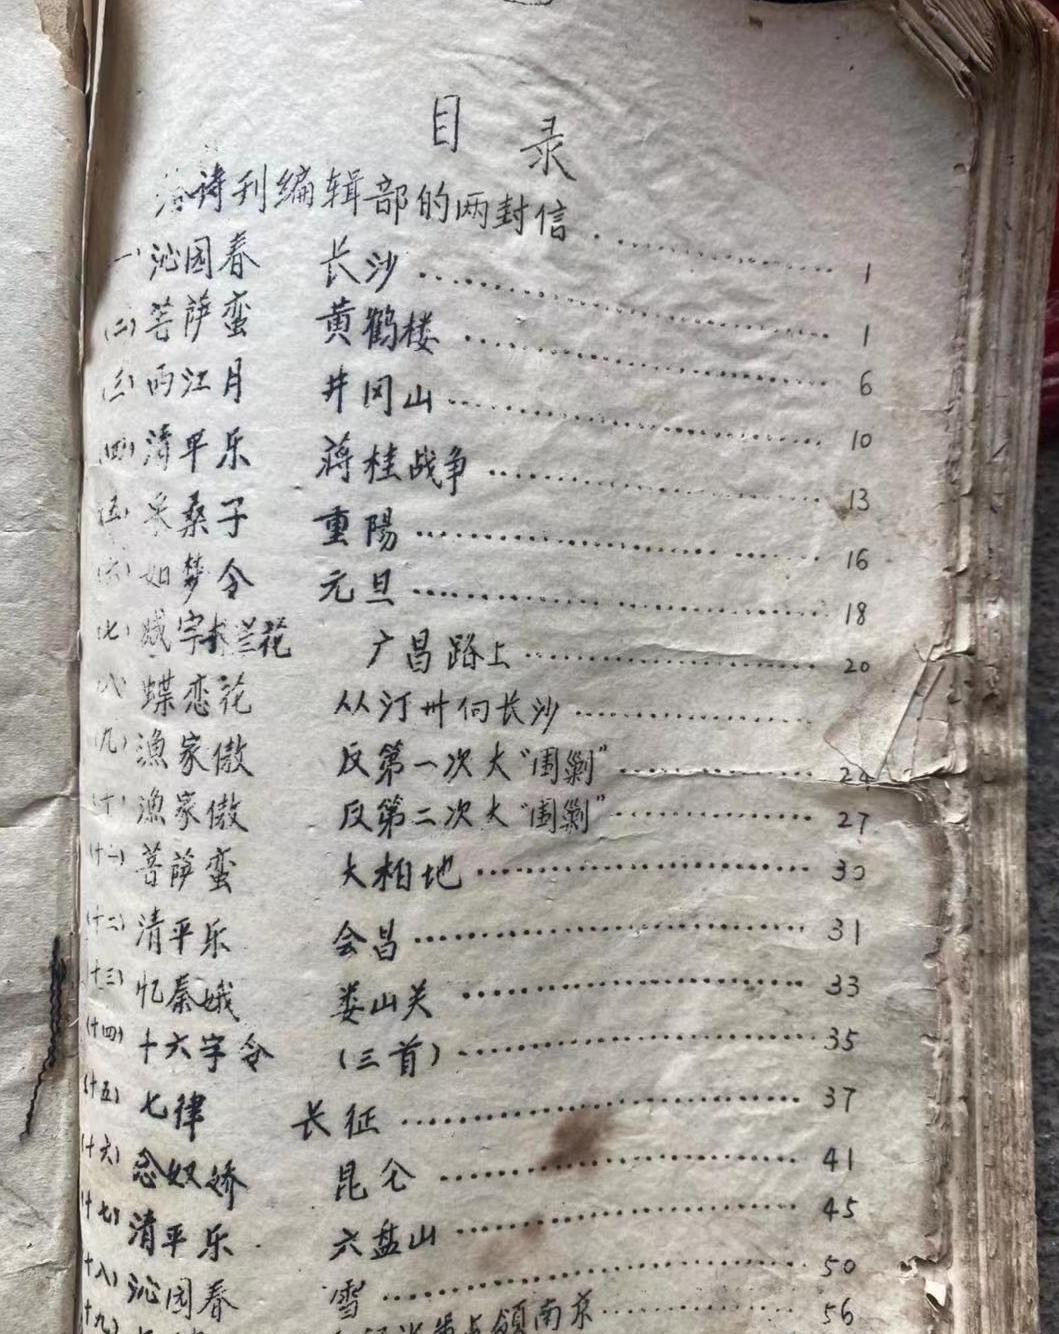 目录
给诗刊编辑部的两封信 ........ 1
(一) 沁园春 长沙 ........ 1
(二) 菩萨蛮 黄鹤楼 ........ 6
(三) 西江月 井冈山 ........ 10
(四) 清平乐 蒋桂战争 ........ 13
(五) 采桑子 重陽 ........ 16
(六) 如梦令 元旦 ........ 18
(七) 减字木兰花 广昌路上 ........ 20
(八) 蝶恋花 从汀州向长沙 ........
(九) 漁家傲 反第一次大“围剿” ........ 24
(十) 漁家傲 反第二次大“围剿” ........ 27
(十一) 菩萨蛮 大柏地 ........ 30
(十二) 清平乐 会昌 ........ 31
(十三) 忆秦娥 娄山关 ........ 33
(十四) 十六字令 (三首) ........ 35
(十五) 七律 长征 ........ 37
(十六) 念奴娇 昆仑 ........ 41
(十七) 清平乐 六盘山 ........ 45
(十八) 沁园春 雪 ........ 50
(十九) 占领南京 ........ 56